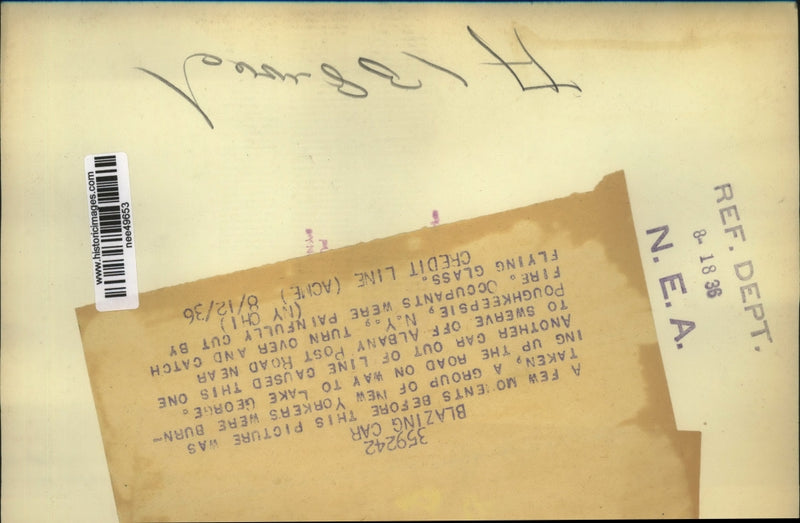 359242
BLAZING CAR
A FEW MOMENTS BEFORE THIS PICTURE WAS
TAKEN, A GROUP OF NEW YORKERS WERE BURN-
ING UP THE ROAD ON WAY TO LAKE GEORGE.
ANOTHER CAR OUT OF LINE CAUSED THIS ONE
TO SWERVE OFF ALBANY POST ROAD NEAR
POUGHKEEPSIE, N.Y., TURN OVER AND CATCH
FIRE. OCCUPANTS WERE PAINFULLY CUT BY
FLYING GLASS.
CREDIT LINE (ACME) 8/12/36
(NY CHI)
REF. DEPT.
8-1836
N.E.A.
www.historicimages.com
nee49653